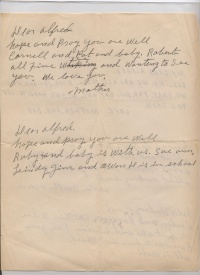 Dear Alfred
hope and Pray you are Well
Carnell and Pat and baby. Robert
all Fine and Wanting to See
you. We love you,
Mother
Dear Alfred.
hope and pray you are Well
Ruby and baby is With us. Sue ann,
and is in school